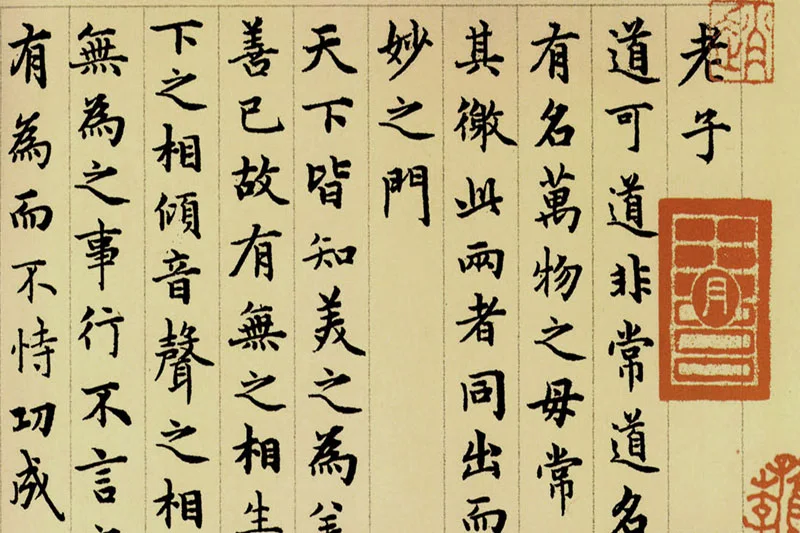 老子
道可道非常道名
有名萬物之母常
其徼此兩者同出而
妙之門
天下皆知美之為美
善已故有無之相生
下之相傾音聲之相
無為之事行不言
有為而不恃功成